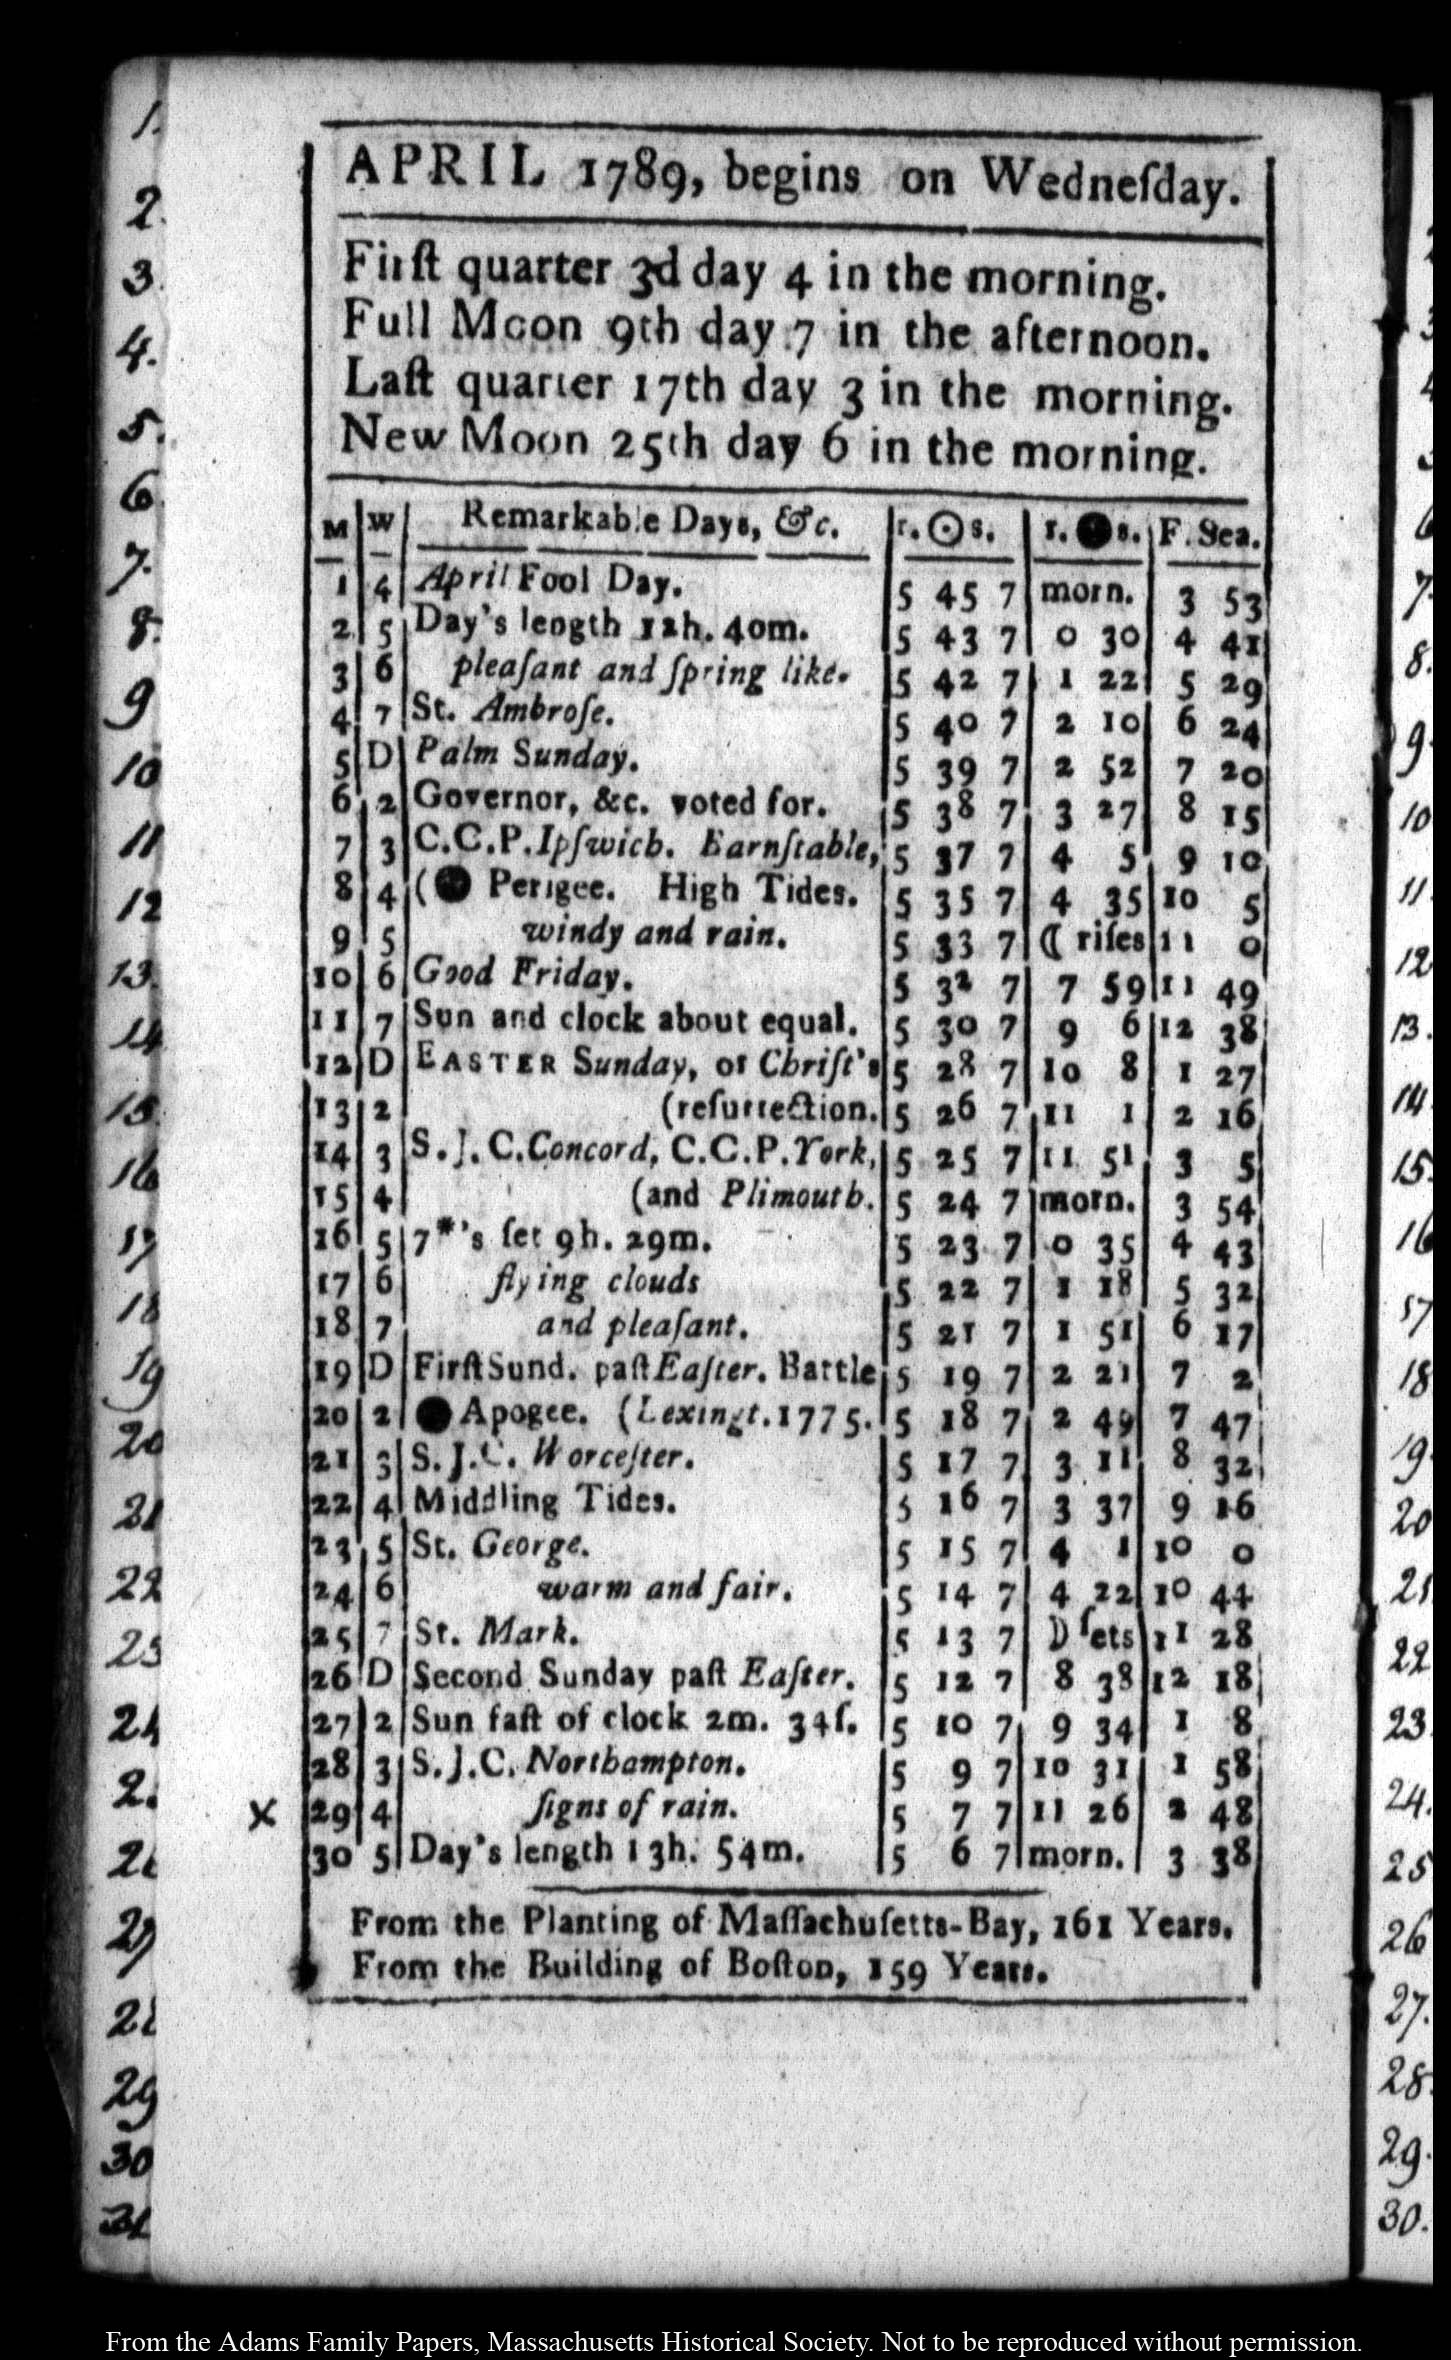 APRIL 1789, begins on Wedneſday.
Firſt quarter 3d day 4 in the morning.
Full Moon 9th day 7 in the afternoon.
Laſt quarter 17th day 3 in the morning.
New Moon 25th day 6 in the morning.
M W Remarkable Days, &c. r. ☉ s. r. ● s. F. Sea.
1 4 April Fool Day. 5 45 7 morn. 3 53
2 5 Day's length 12h. 40m. 5 43 7 0 30 4 41
3 6 pleaſant and ſpring like. 5 42 7 1 22 5 29
4 7 St. Ambroſe. 5 40 7 2 10 6 24
5 D Palm Sunday. 5 39 7 2 52 7 20
6 2 Governor, &c. voted for. 5 38 7 3 27 8 15
7 3 C.C.P. Ipſwich. Barnſtable, 5 37 7 4 5 9 10
8 4 (● Perigee. High Tides. 5 35 7 4 35 10 5
9 5 windy and rain. 5 33 7 ☾ riſes 11 0
10 6 Good Friday. 5 32 7 7 59 11 49
11 7 Sun and clock about equal. 5 30 7 9 6 12 38
12 D EASTER Sunday, or Chriſt's 5 28 7 10 8 1 27
13 2 (reſurrection. 5 26 7 11 1 2 16
14 3 S.J.C. Concord, C.C.P. York, 5 25 7 11 51 3 5
15 4 (and Plimouth. 5 24 7 morn. 3 54
16 5 7*'s ſet 9h. 29m. 5 23 7 0 35 4 43
17 6 flying clouds 5 22 7 1 18 5 32
18 7 and pleaſant. 5 21 7 1 51 6 17
19 D Firſt Sund. paſt Eaſter. Battle 5 19 7 2 21 7 2
20 2 ● Apogee. (Lexingt. 1775. 5 18 7 2 49 7 47
21 3 S.J.C. Worceſter. 5 17 7 3 11 8 32
22 4 Middling Tides. 5 16 7 3 37 9 16
23 5 St. George. 5 15 7 4 1 10 0
24 6 warm and fair. 5 14 7 4 22 10 44
25 7 St. Mark. 5 13 7 ☽ ſets 11 28
26 D Second Sunday paſt Eaſter. 5 12 7 8 38 12 18
27 2 Sun faſt of clock 2m. 34ſ. 5 10 7 9 34 1 8
28 3 S.J.C. Northampton. 5 9 7 10 31 1 58
x 29 4 ſigns of rain. 5 7 7 11 26 2 48
30 5 Day's length 13h. 54m. 5 6 7 morn. 3 38
From the Planting of Maſſachuſetts-Bay, 161 Years.
From the Building of Boſton, 159 Years.
1.
2.
3.
4.
5.
6.
7.
8.
9
10
11
12
13.
14
15.
16
17
18
19
20
21
22
29
30
31
7.
8.
9.
10
11.
12
13.
14.
15.
16
17
18
19.
20
21
22.
23.
24.
25
26
27.
28.
29.
30.
From the Adams Family Papers, Massachusetts Historical Society. Not to be reproduced without permission.